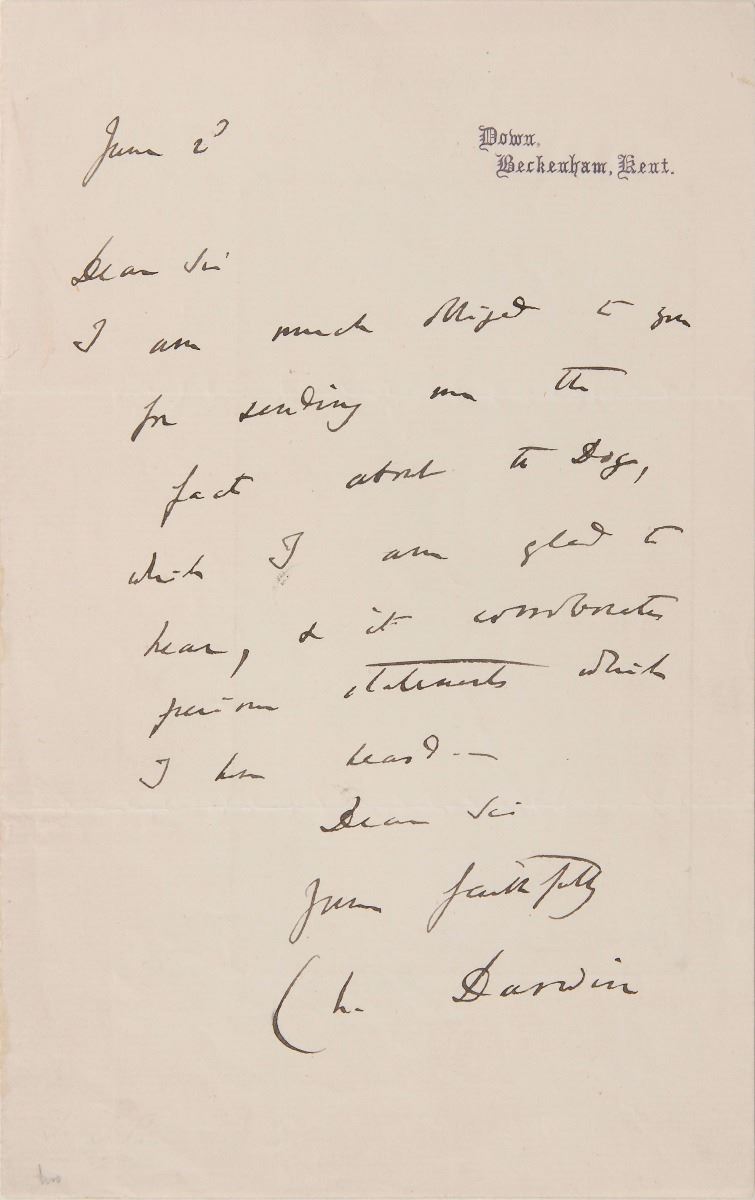 June 2d
Down,
Beckenham, Kent.
Dear Sir
I am much obliged to you
for sending me the
fact about the Dog,
which I am glad to
hear, & it corroborates
previous statements which
I have heard.—
Dear Sir
Yours faithfully
Ch. Darwin